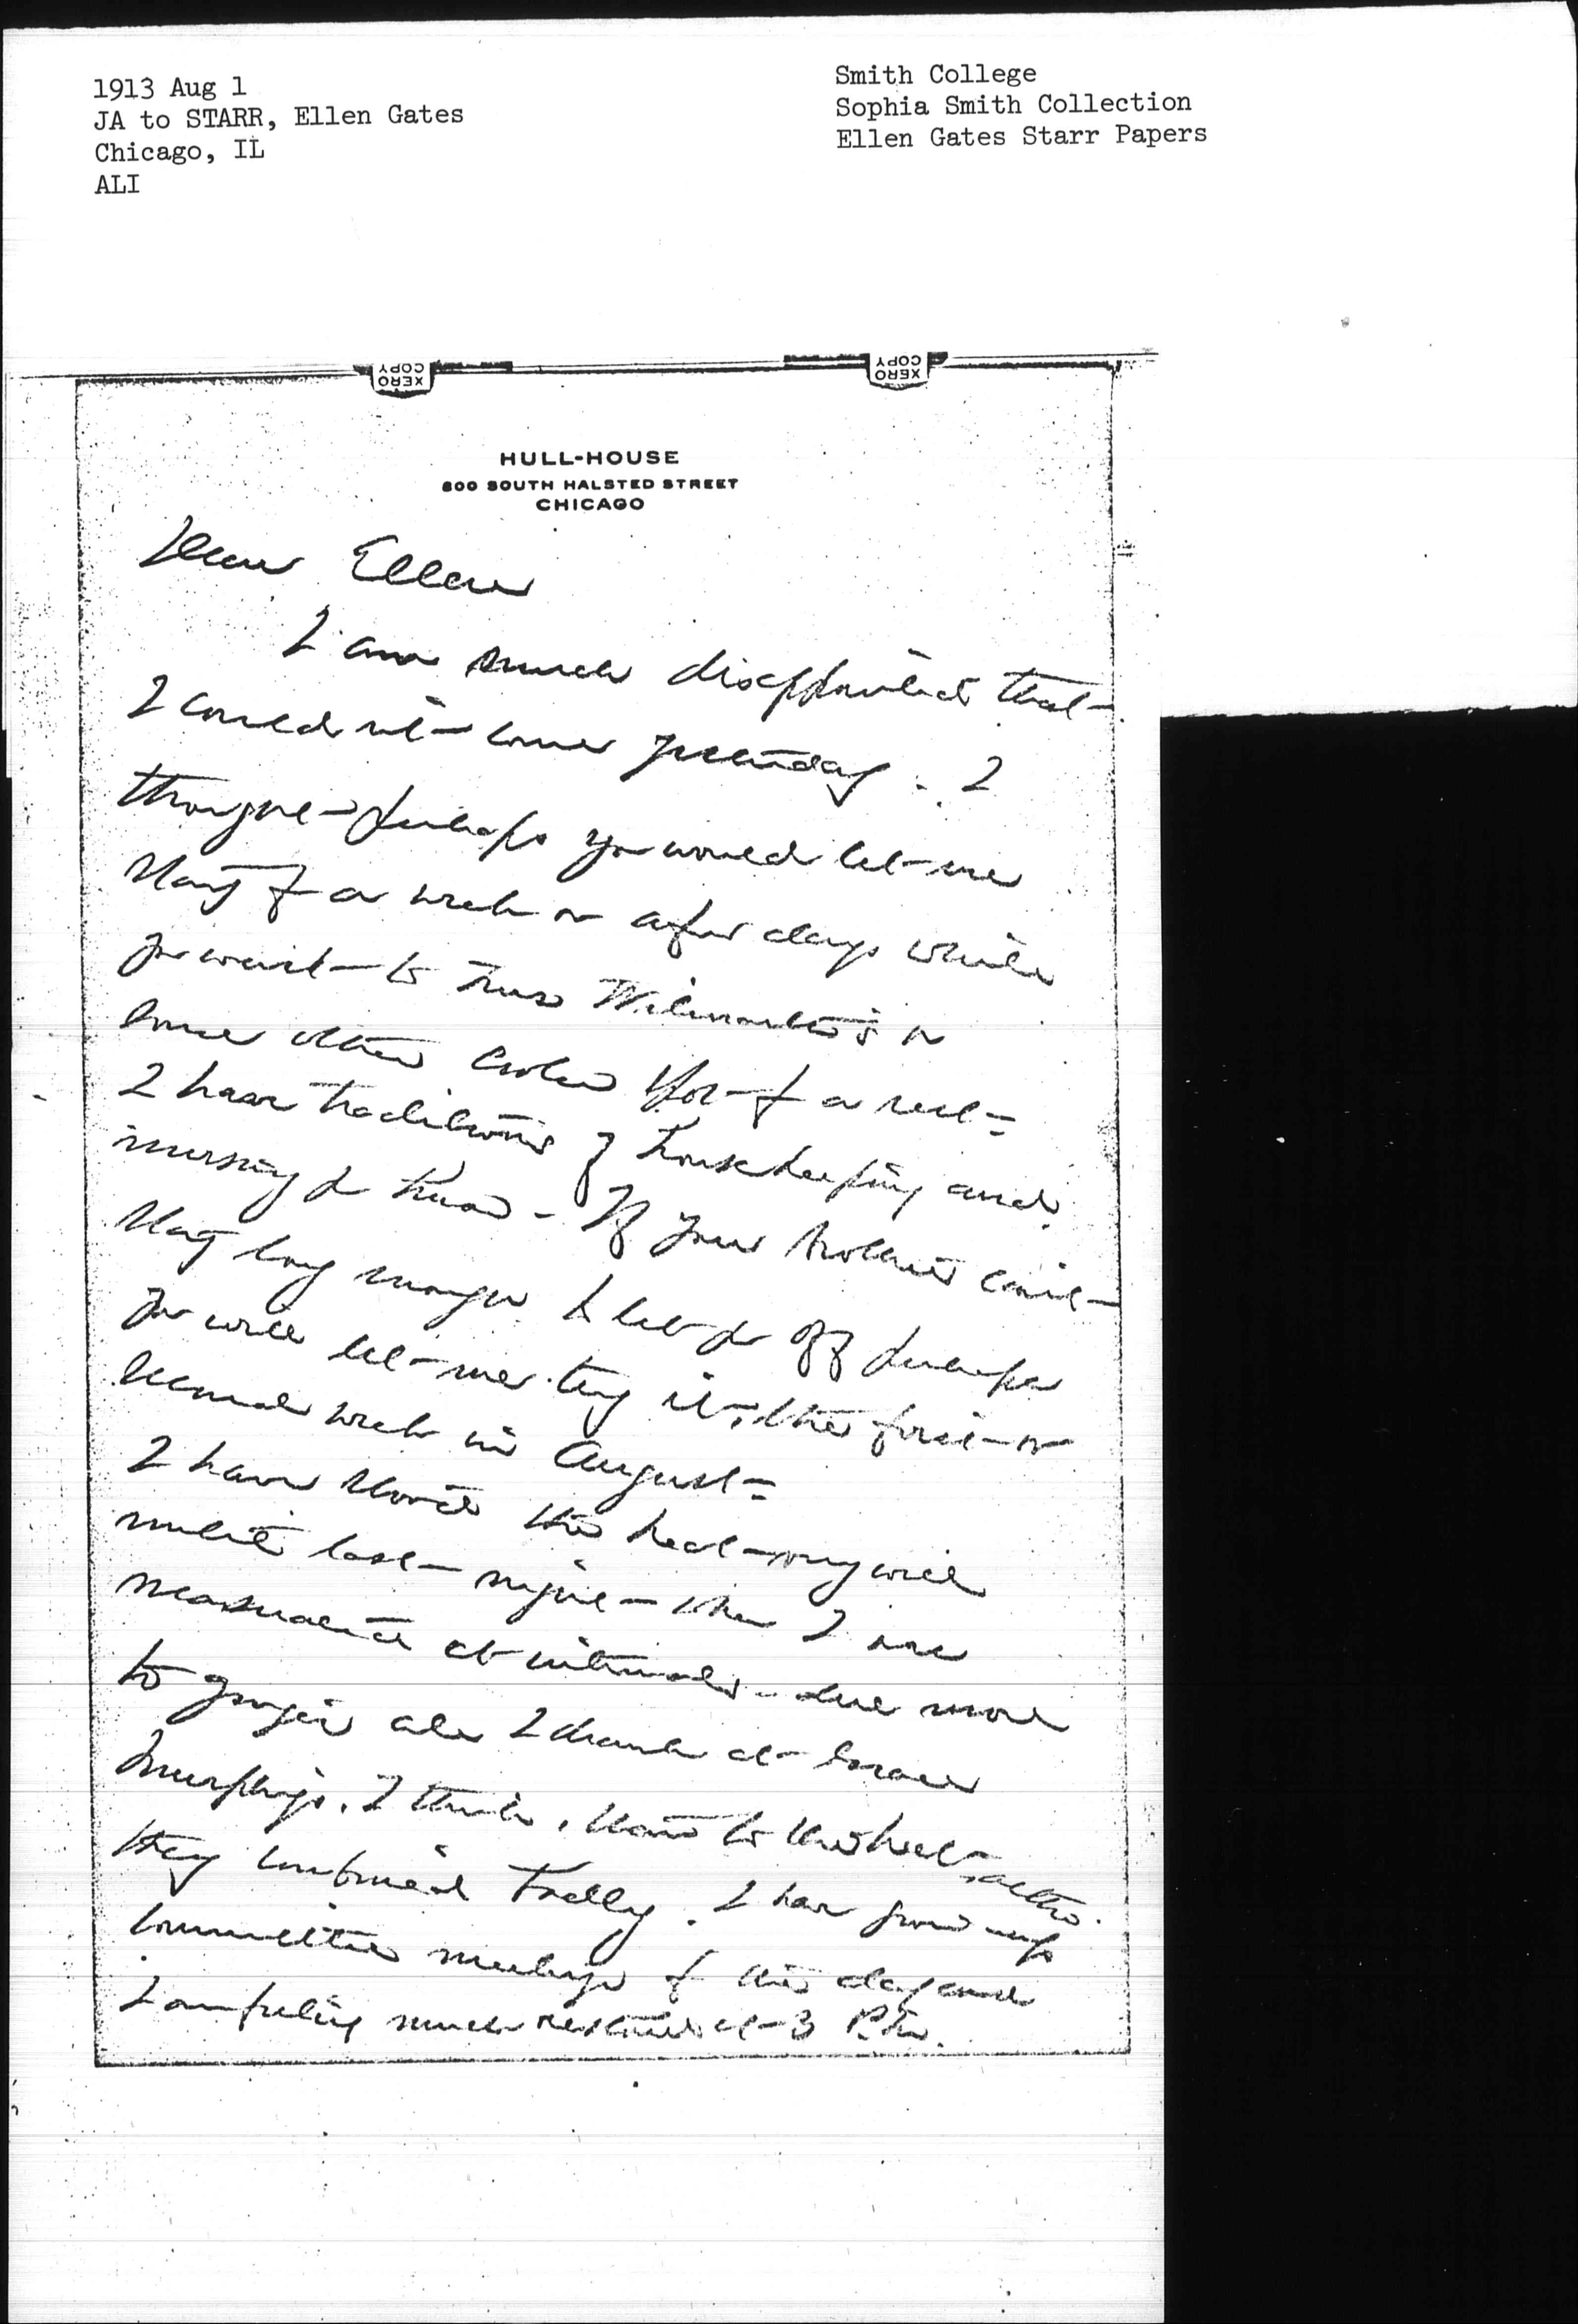 1913 Aug 1
JA to STARR, Ellen Gates
Chicago, IL
ALI
Smith College
Sophia Smith Collection
Ellen Gates Starr Papers
XERO COPY
XERO COPY
HULL-HOUSE
800 SOUTH HALSTED STREET
CHICAGO
Dear Ellen
I am much disappointed that
I could not come yesterday. I
thought perhaps you would let me
stay for a week or a few days while
you went to Mrs Wilmarth's or
some other cooler spot for a rest -
I have traditions of housekeeping and
nursing you know - If your brother can't
stay long enough to let you off perhaps
you will let me try it, the first or
second week in August -
I have stood the heat very well
until last night when I was
nauseated at intervals - due more
to ginger ale I drank at
Murphy's, I think, than to the heat - altho
they combined badly. I have given up
committee meetings for the day and
I am feeling much restored at 3 P.M.